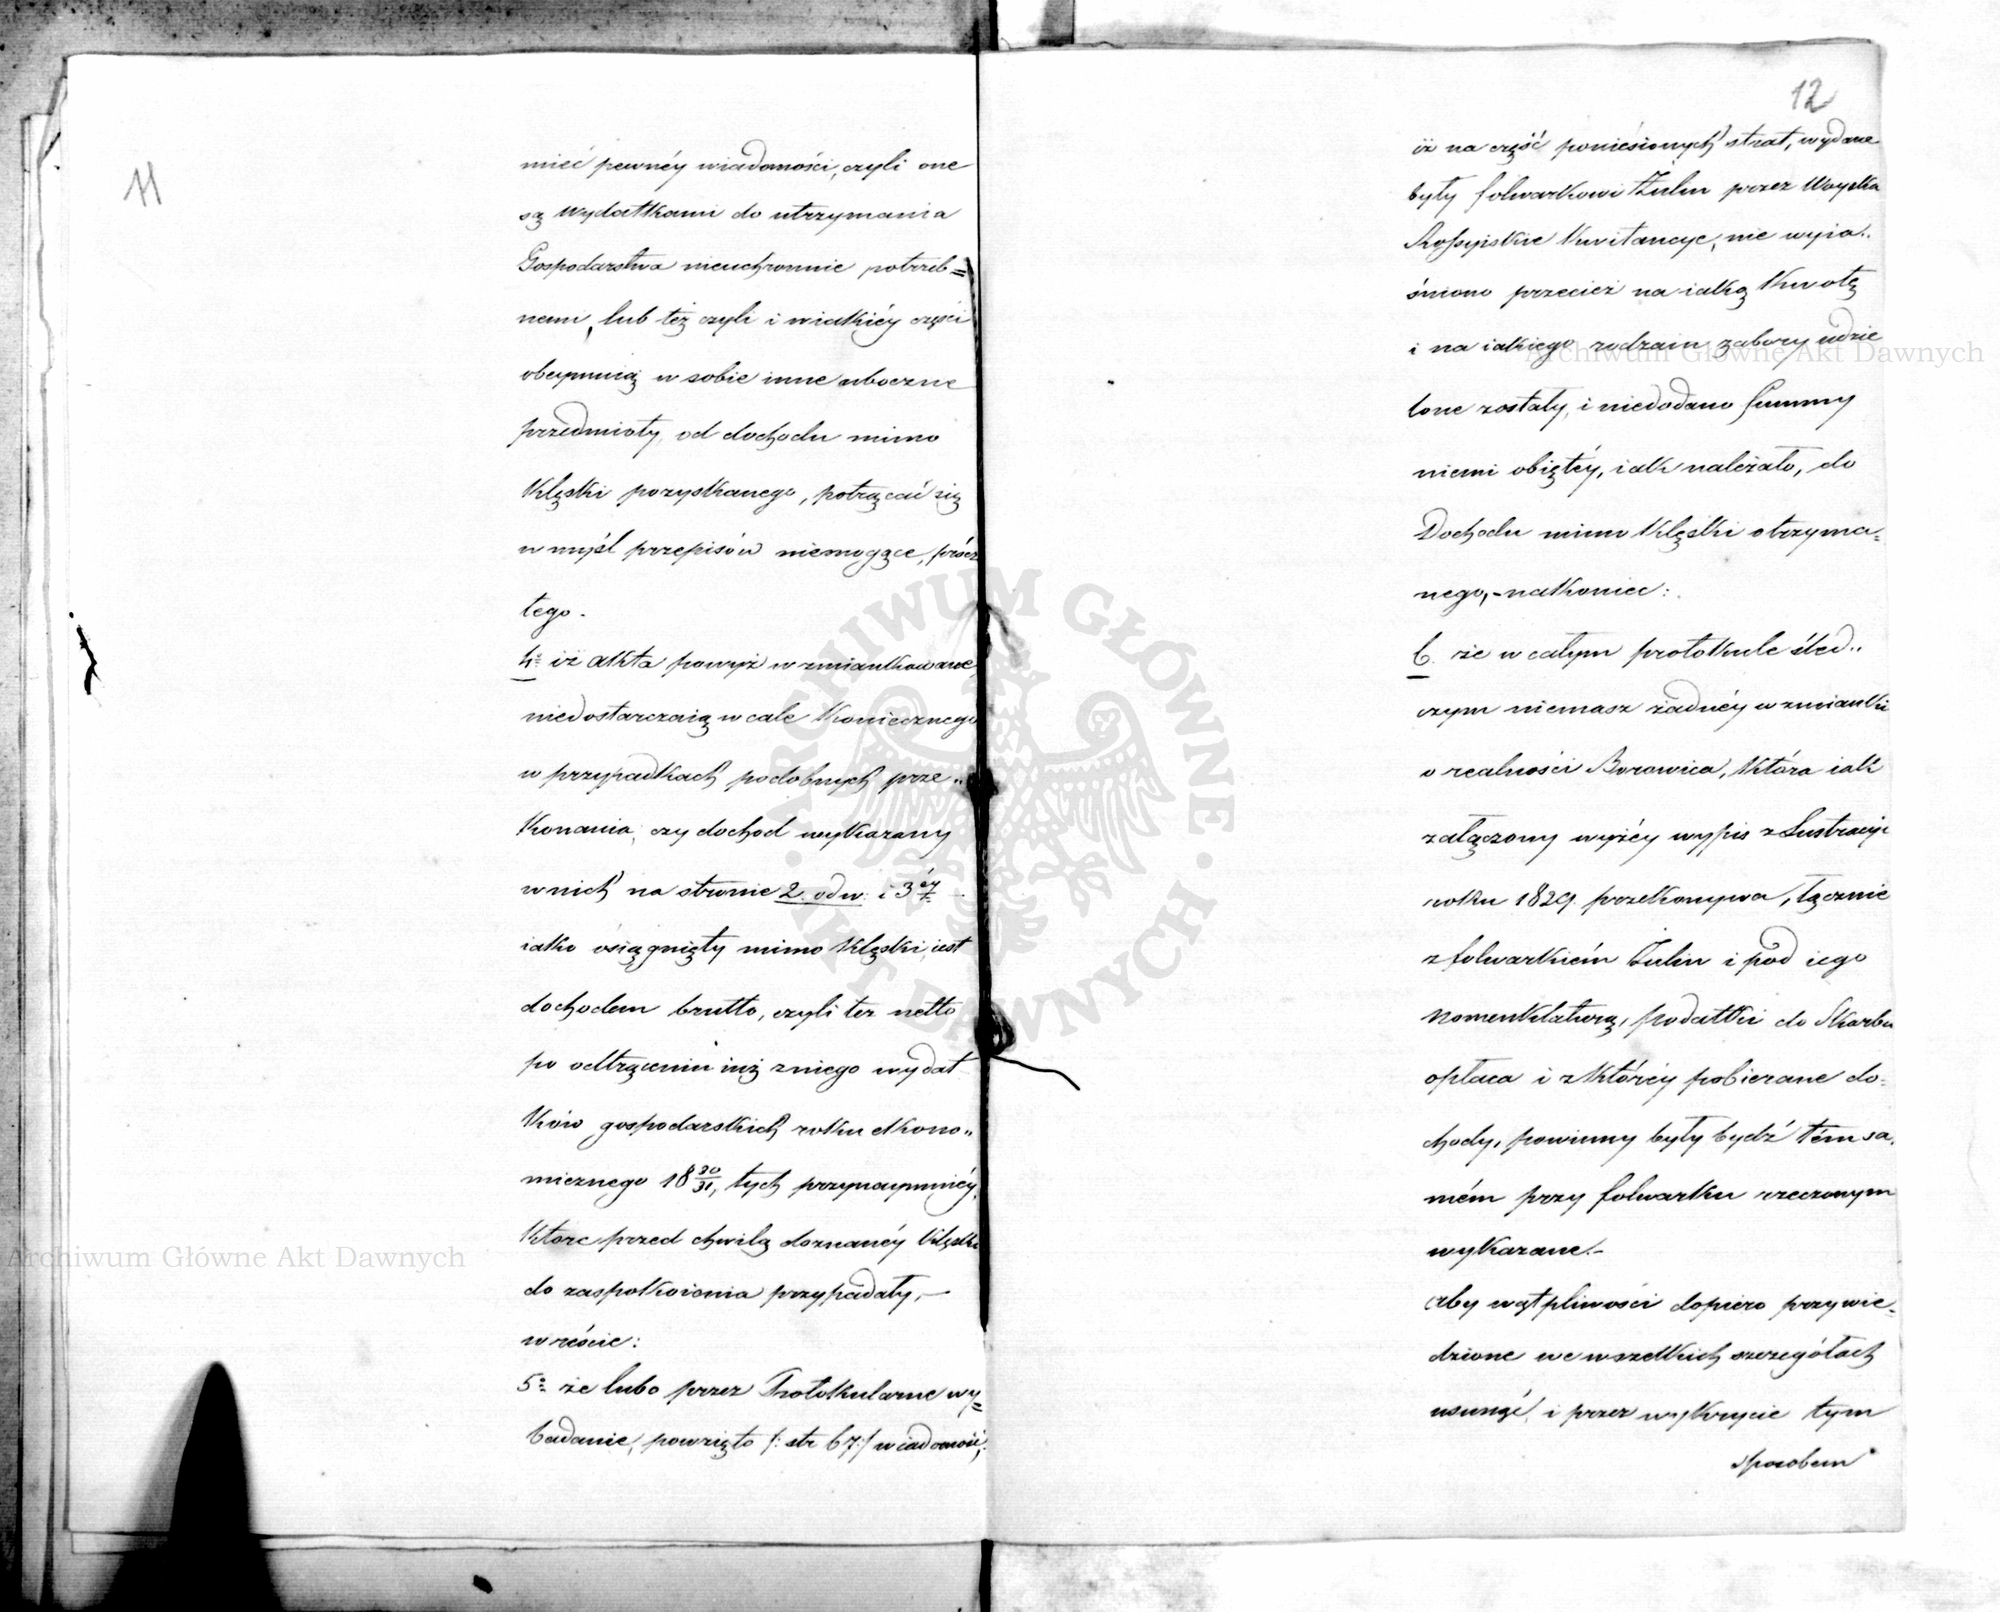 11
mieć pewnéy wiadomości, czyli one
są wydatkami do utrzymania
Gospodarstwa nieuchronnie potrzeb=
nemi, lub też czyli i w iakiéy części
obeymuią w sobie inne uboczne
przedmioty, od dochodu mimo
klęski pozyskanego, potrącać się
w myśl przepisów niemogące, prócz
tego.
4o iż akta powyż wzmiankowane
niedostarczaią wcale koniecznego
w przypadkach podobnych prze„
konania, czy dochod wykazany
w nich na stronie 2. odw: i 3éy
iako osiągnięty mimo klęski, iest
dochodem brutto, czyli też netto
po odtrąceniu iuż z niego wydat
ków gospodarskich roku ekono„
micznego 18 30/31, tych przynaymniéy,
które przed chwilą doznanéy klęski
do zaspokoienia przypadały,—
wreście:
5o że lubo przez Protokularne wy=
badanie, powzięto /: str 67:/ wiadomość,
12
iż na część poniesionych strat, wydane
były folwarkowi Żulin przez Woyska
Rossyiskie kwitancye, nie wyia„
śniono przecież na iaką kwotę
i na iakiego rodzaiu zabory udzie
lone zostały, i niedodano Summy
niemi obiętéy, iak należało, do
Dochodu mimo klęski otrzyma=
nego,- nakoniec:
6. że w całym protokule śled„
czym niemasz żadnéy wzmianki
o realności Borowica, która iak
załączony wyżéy wypis z Lustracyi
roku 1829. przekonywa, łącznie
z folwarkiem Żulin i pod iego
nomenklaturą, podatki do Skarbu
opłaca i z któréy pobierane do=
chody, powinny były bydź tém sa„
mém przy folwarku rzeczonym
wykazane.-
Aby wątpliwości dopiero przywie=
dzione we wszelkich szczegółach
usunąć, i przez wykrycie tym
sposobem
Archiwum Główne Akt Dawnych
Archiwum Główne Akt Dawnych
· ARCHIWUM GŁÓWNE · AKT DAWNYCH